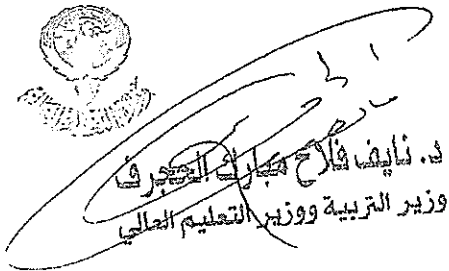 د. نايف فلاح مبارك الحجرف
وزير التربية ووزير التعليم العالي